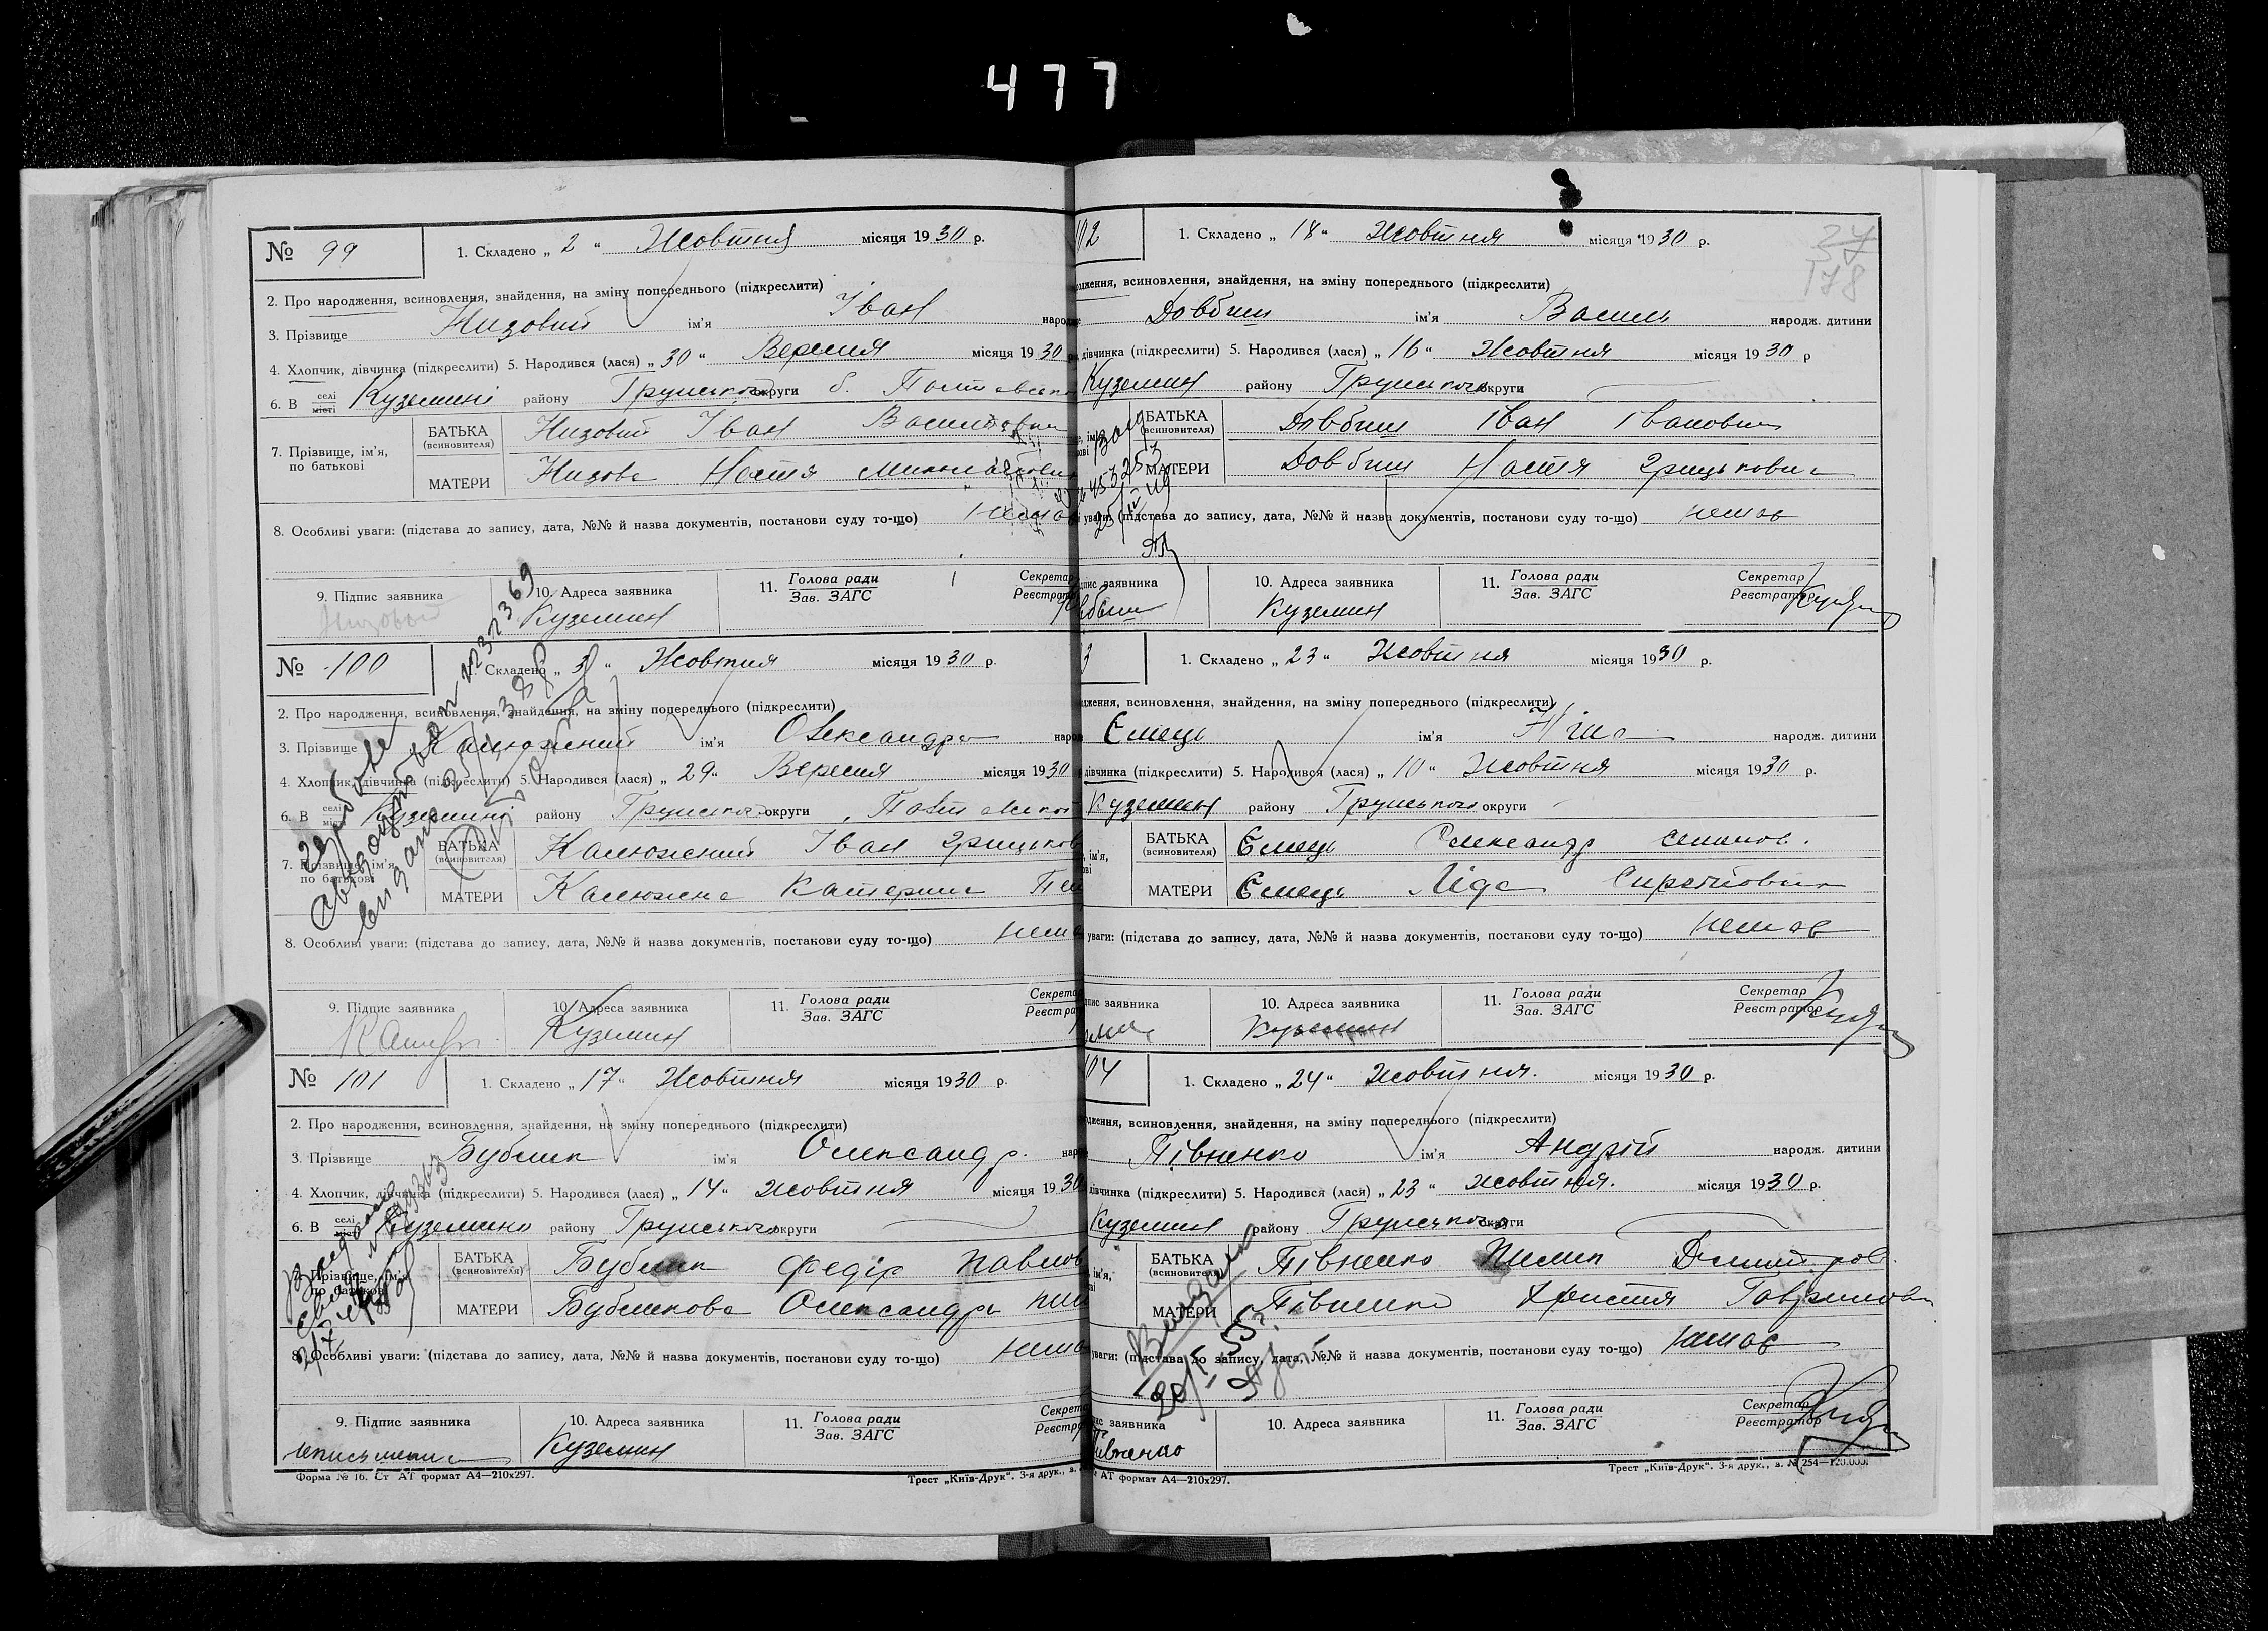 477
№ 99
1. Складено „ 2 “ Жовтня місяця 1930 р.
2. Про народження, всиновлення, знайдення, на зміну попереднього (підкреслити)
3. Прізвище Низовий ім'я Іван народж
4. Хлопчик, дівчинка (підкреслити) 5. Народився (лася) „ 30 “ Вересня місяця 1930
6. В селі місті Куземині району Грунського округи б. Полтавсько
7. Прізвище, ім'я, по батькові
БАТЬКА (всиновителя) Низовий Іван
МАТЕРИ Низова Настя
8. Особливі уваги: (підстава до запису, дата, №№ й назва документів, постанови суду то-що)
9. Підпис заявника Низовий
10. Адреса заявника Куземин
11. Голова ради Зав. ЗАГС
Секретар Реєстратор
№ 100
1. Складено „ 3 “ Жовтня місяця 1930 р.
2. Про народження, всиновлення, знайдення, на зміну попереднього (підкреслити)
3. Прізвище Калюжний ім'я Олександра
4. Хлопчик, дівчинка (підкреслити) 5. Народився (лася) „ 29 “ Вересня місяця 1930
6. В селі Куземині району Грунського округи
7. Прізвище, ім'я, по батькові
БАТЬКА (всиновителя) Калюжний Іван Грицьков
МАТЕРИ Калюжна Катерина
8. Особливі уваги: (підстава до запису, дата, №№ й назва документів, постанови суду то-що) нема
9. Підпис заявника
10. Адреса заявника Куземин
11. Голова ради Зав. ЗАГС
№ 101
1. Складено „ 17 “ Жовтня місяця 1930 р.
2. Про народження, всиновлення, знайдення, на зміну попереднього (підкреслити)
3. Прізвище Бублик ім'я Олександр.
4. Хлопчик, дівчинка (підкреслити) 5. Народився (лася) „ 14 “ жовтня місяця 1930
6. В селі Куземині району Грунського округи
БАТЬКА (всиновителя) Бублик Федір Павлов
МАТЕРИ Бубликова Олександра
8. Особливі уваги: (підстава до запису, дата, №№ й назва документів, постанови суду то-що) нема
9. Підпис заявника
10. Адреса заявника Куземин
11. Голова ради Зав. ЗАГС
Форма № 16. Ст АТ формат А4—210х297.
Трест „Київ-Друк“. 3-я друк., з.
102
1. Складено „ 18 “ Жовтня місяця 1930 р.
37
178
одження, всиновлення, знайдення, на зміну попереднього (підкреслити)
Довбиш ім'я Василь народж. дитини
дівчинка (підкреслити) 5. Народився (лася) „ 16 “ Жовтня місяця 1930 р
Куземин району Грунського округи
БАТЬКА (всиновителя) Довбиш Іван Іванович
МАТЕРИ Довбиш Настя Грицькович
уваги: (підстава до запису, дата, №№ й назва документів, постанови суду то-що) немає
підпис заявника
10. Адреса заявника Куземин
11. Голова ради Зав. ЗАГС
Секретар Реєстратор
3
1. Складено „ 23 “ Жовтня місяця 1930 р.
одження, всиновлення, знайдення, на зміну попереднього (підкреслити)
Ємець ім'я Ніна народж. дитини
дівчинка (підкреслити) 5. Народився (лася) „ 10 “ Жовтня місяця 1930 р.
Куземин району Грунського округи
БАТЬКА (всиновителя) Ємець Олександр
МАТЕРИ Ємець Ліда
уваги: (підстава до запису, дата, №№ й назва документів, постанови суду то-що) немає
підпис заявника
10. Адреса заявника Куземин
11. Голова ради Зав. ЗАГС
Секретар Реєстратор
04
1. Складено „ 24 “ жовтня. місяця 1930 р.
одження, всиновлення, знайдення, на зміну попереднього (підкреслити)
Півненко ім'я Андрій народж. дитини
дівчинка (підкреслити) 5. Народився (лася) „ 23 “ жовтня. місяця 1930 р.
Куземин району Грунського округи
БАТЬКА (всиновителя) Півненко Пилип Дмитров.
МАТЕРИ Півненко Христя Гаврилова
уваги: (підстава до запису, дата, №№ й назва документів, постанови суду то-що) немає
заявника Півненко
10. Адреса заявника
11. Голова ради Зав. ЗАГС
Секретар Реєстратор
АТ формат А4—210х297.
Трест „Київ-Друк“. 3-я друк., з. № 254—120.000.